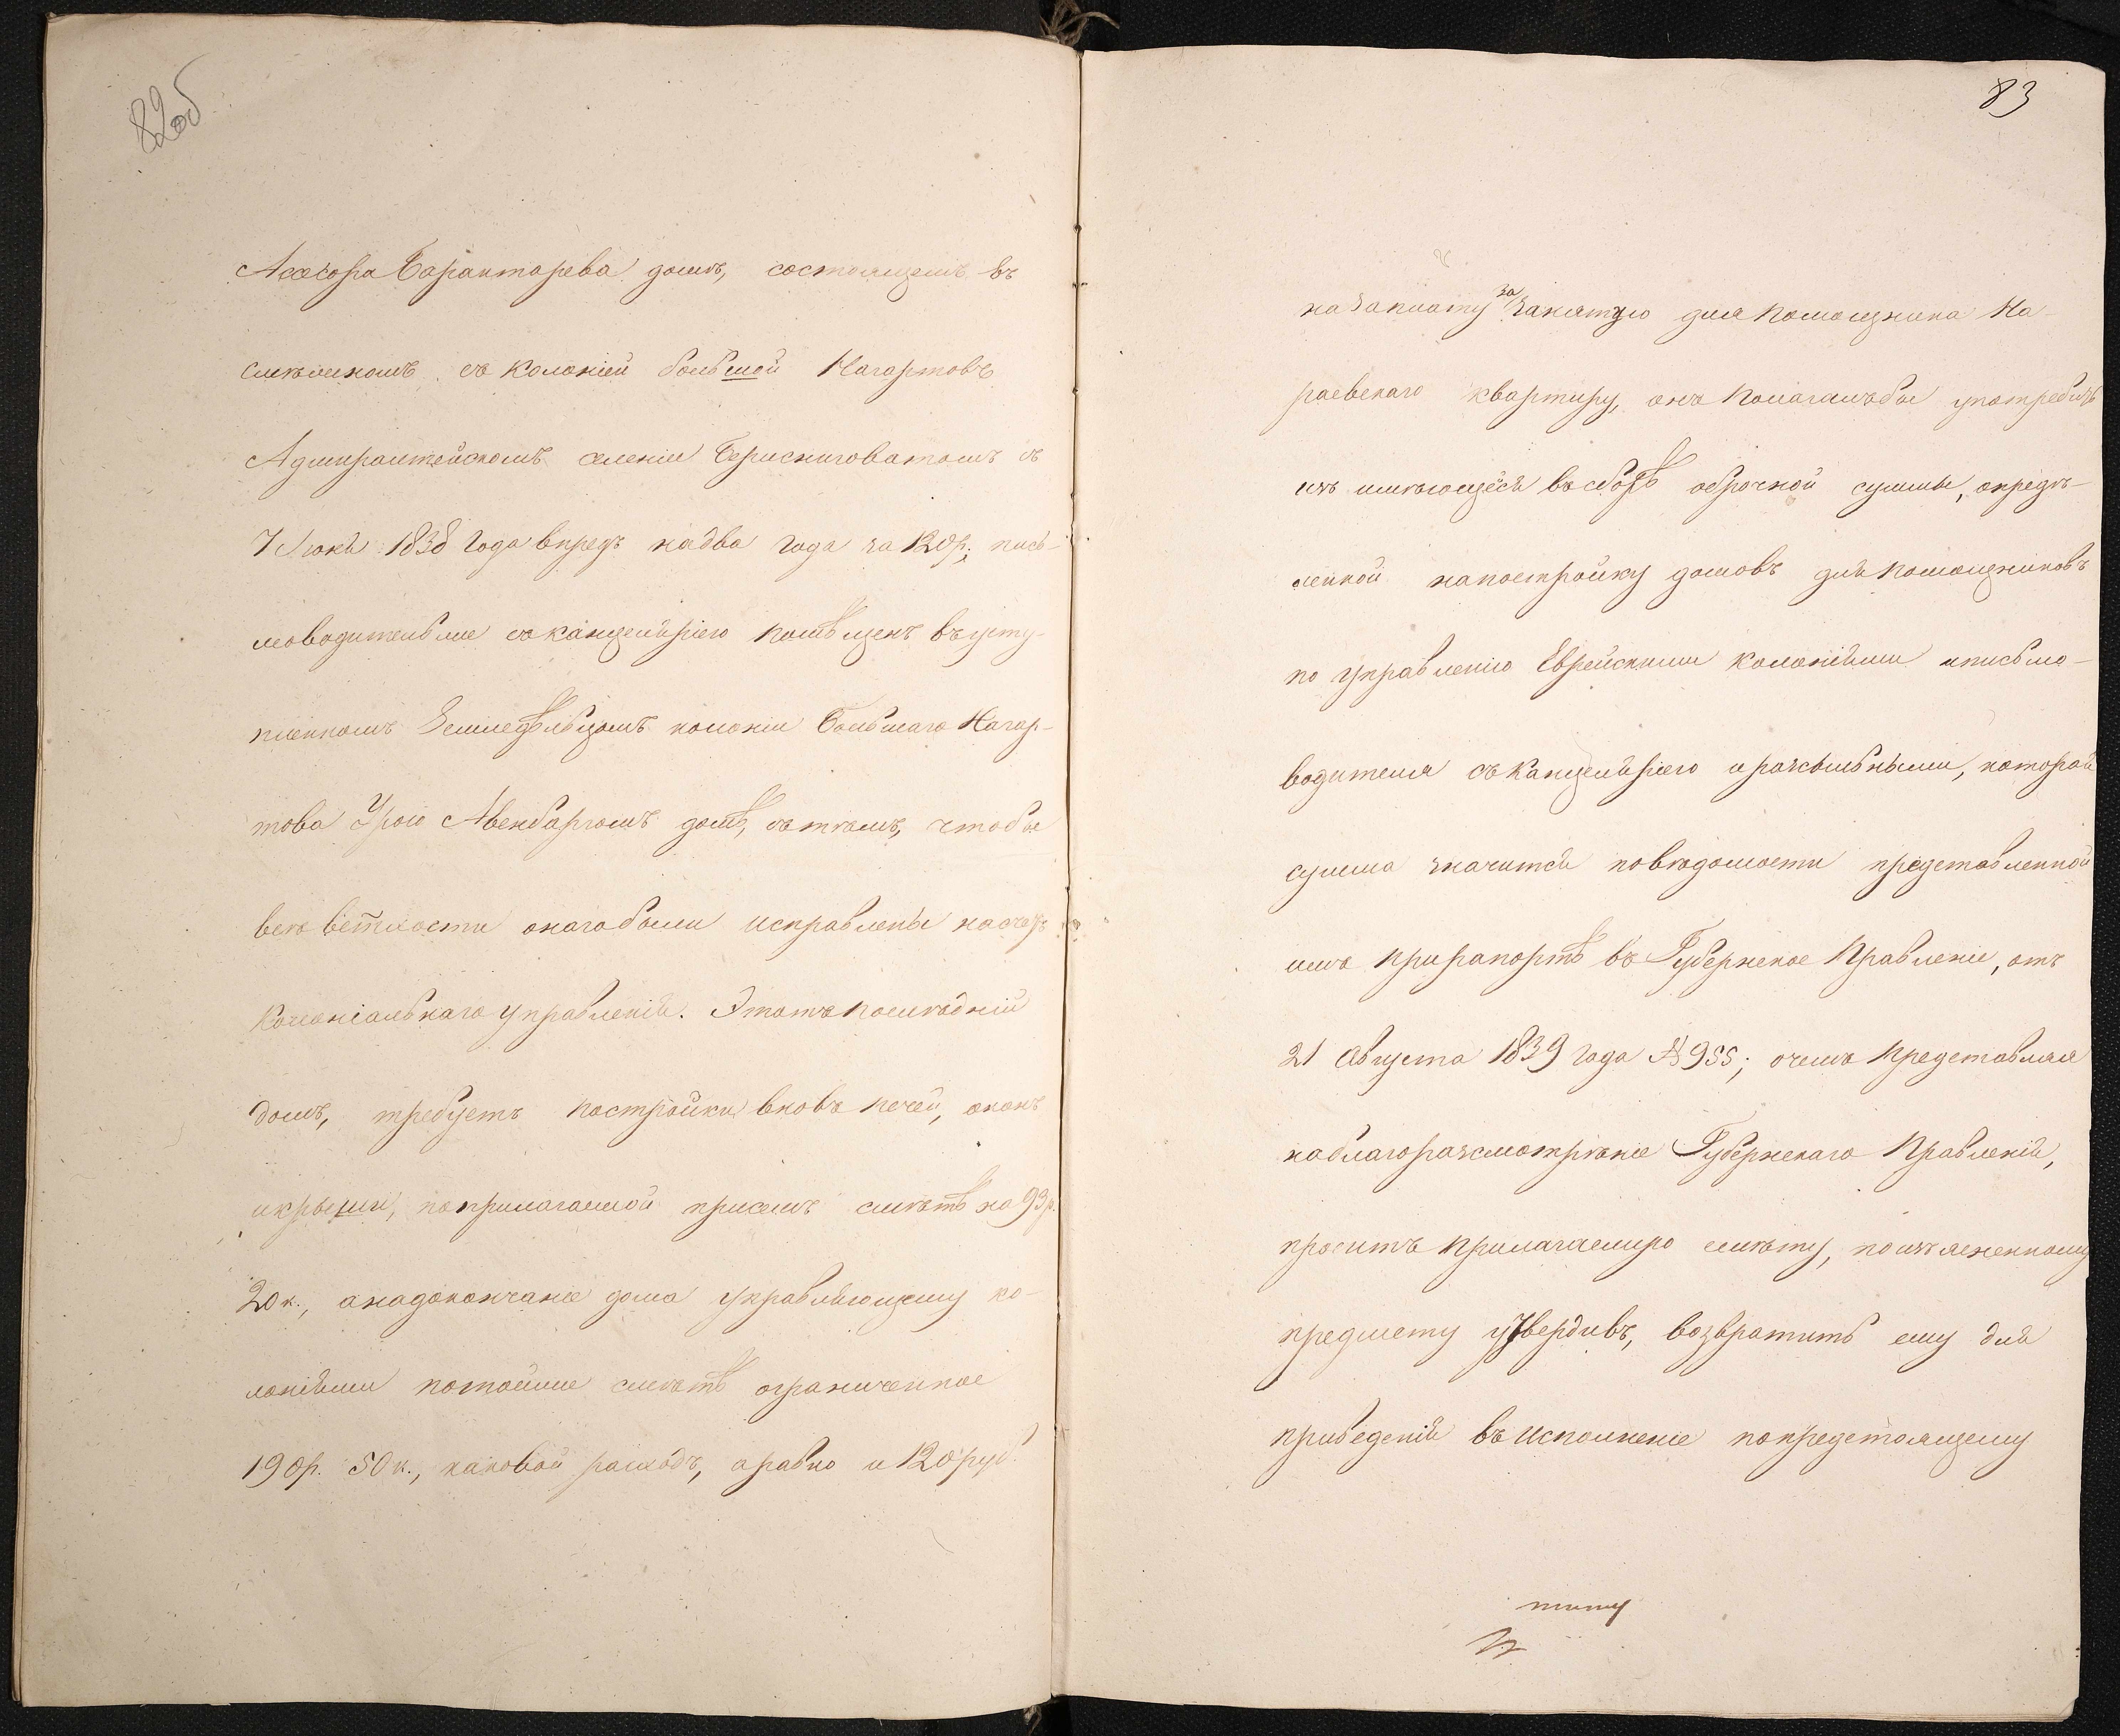 82об
Ассесора Барантарева домѣ, состоящемъ въ
смѣжномъ съ колоніей большой Нагартовъ
Адмиралтейскомъ селеніи Березниговатомъ съ
7 Іюня 1838 года впредь на два года за 120 р; пись-
моводитель же съ канцеляріею помѣщенъ въ усту-
пленномъ Земледѣльцомъ колоніи Большаго Нагар-
това домѣ, съ тѣмъ, чтобы
все ветхости онаго были исправлены на счетъ
колоніальнаго управленія. Этотъ послѣдній
домъ, требуетъ постройки вновь печей, оконъ
и крыши, по прилагаемой при семъ смѣтѣ на 93 р.
20 к., а на докончаніе дома управляющему ко-
лоніями по той же смѣтѣ ограниченное
190 р. 50 к., каковой расходъ, а равно и 120 руб.
83
на заплату за занятую для помощника На-
раевскаго квартиру, онъ полагалъ бы употребить
изъ имѣющейся въ сборѣ оброчной суммы, опредѣ-
ленной на постройку домовъ для помощниковъ
по управленію Еврейскими колоніями и письмо-
водителя съ канцеляріею и разсыльными, которой
сумма значится по вѣдомости представленной
имъ при рапортѣ въ Губернское Правленіе, отъ
21 Августа 1839 года № 955; о чемъ представляя
на благоразсмотрѣніе Губернскаго Правленія,
проситъ прилагаемую смѣту, по изъясненному
предмету утвердивъ, возвратить ему для
приведенія въ исполненіе по предстоящему